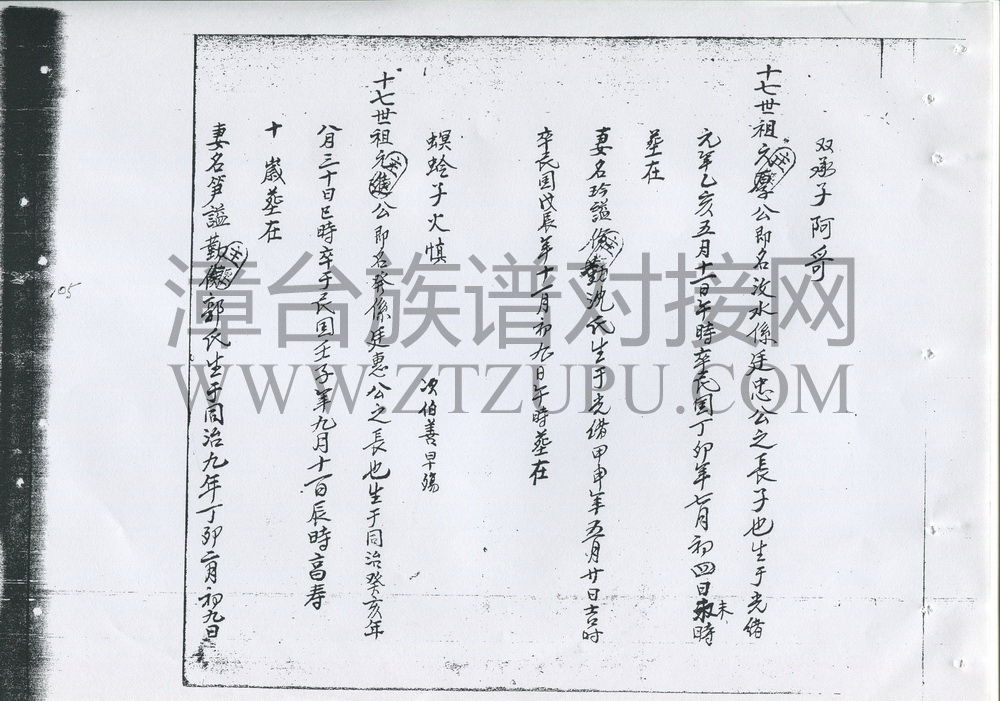 双承子阿哥
十七世祖元厚公即名汝水係廷忠公之長子也生于光绪
元年乙亥五月十二日午時卒民国丁卯年七月初四日未時
塟在
妻名玲謚勤沈氏生于光绪甲申年五月廿日吉时
卒民国戊辰年十一月初九日午時塟在
螟蛉子火慎
次伯善早殤
十七世祖元進公即名發係廷惠公之長也生于同治癸亥年
八月三十日巳時卒于民国壬子年九月十一日辰時高寿
十歲塟在
妻名笋謚勤儉郭氏生于同治九年丁卯二月初九日
105
漳台族谱对接网
WWW.ZTZUPU.COM